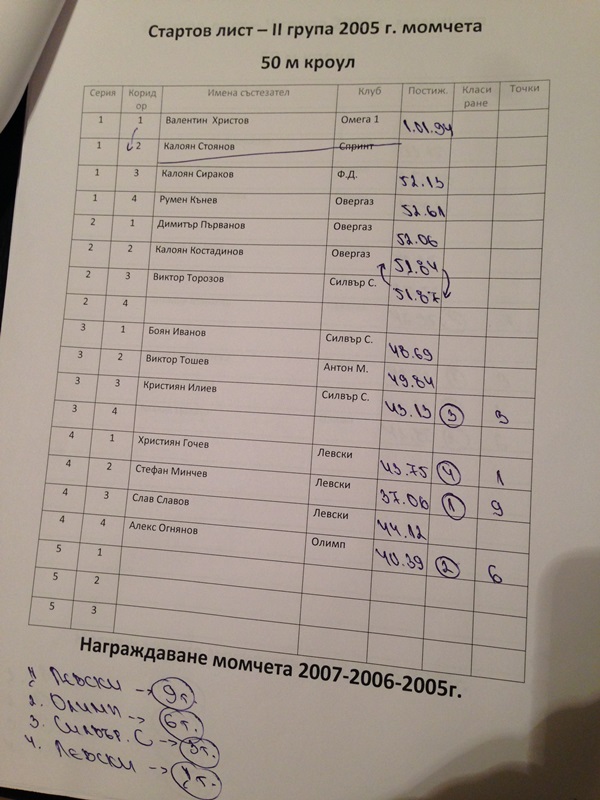 Стартов лист – II група 2005 г. момчета
50 м кроул
Серия Коридор Имена състезател Клуб Постиж. Класиране Точки
1 1 Валентин Христов Омега 1 1.01.94
1 2 Калоян Стоянов Спринт
1 3 Калоян Сираков Ф.Д. 52.13
1 4 Румен Кънев Овергаз 52.61
2 1 Димитър Първанов Овергаз 52.06
2 2 Калоян Костадинов Овергаз 51.84
2 3 Виктор Торозов Силвър С. 51.87
2 4
3 1 Боян Иванов Силвър С. 48.69
3 2 Виктор Тошев Антон М. 49.84
3 3 Кристиян Илиев Силвър С. 43.13 3 3
3 4
4 1 Християн Гочев Левски 43.75 4 1
4 2 Стефан Минчев Левски 37.06 1 9
4 3 Слав Славов Левски 44.12
4 4 Алекс Огнянов Олимп 40.39 2 6
5 1
5 2
5 3
Награждаване момчета 2007-2006-2005г.
1. Левски -> 9т.
2. Олимп -> 6т.
3. Силвър. С -> 3т.
4. Левски -> 1т.